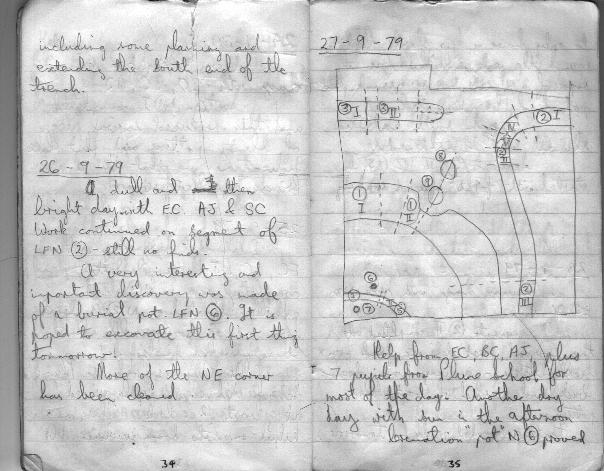 including some planning and
extending the South end of the
trench.
26-9-79
dull and then
bright day with EC AJ & SC
Work continued on segment of
LFN ② - still no finds.
A very interesting and
important discovery was made
of a burial pot LFN ⑥. It is
hoped to excavate this first thing
tomorrow!
More of the NE corner
has been cleaned
34
27-9-79
③ I ③ II
② I
⑧
⑦
① I
① II
⑥
⑦
② III
Help from EC, SC, AJ, plus
7 pupils from Plume School for
most of the day. Another dry
day with sun in the afternoon
Cremation "pot" N ⑥ proved
35